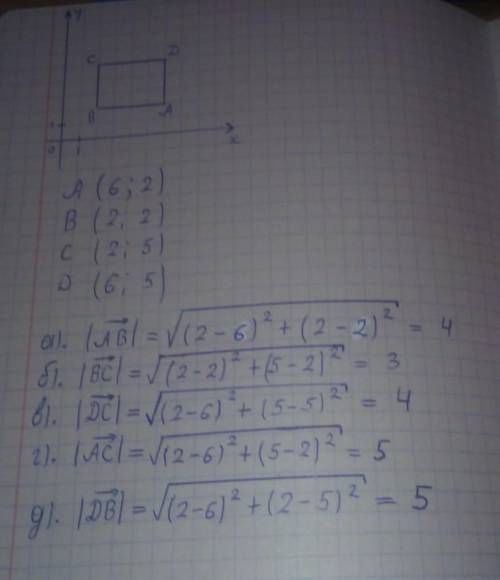 y
C D
B A
1
0 1 x
A (6; 2)
B (2; 2)
C (2; 5)
D (6; 5)
а). |AB⃗| = √((2-6)² + (2-2)²) = 4
б). |BC⃗| = √((2-2)² + (5-2)²) = 3
в). |DC⃗| = √((2-6)² + (5-5)²) = 4
г). |AC⃗| = √((2-6)² + (5-2)²) = 5
д). |DB⃗| = √((2-6)² + (2-5)²) = 5